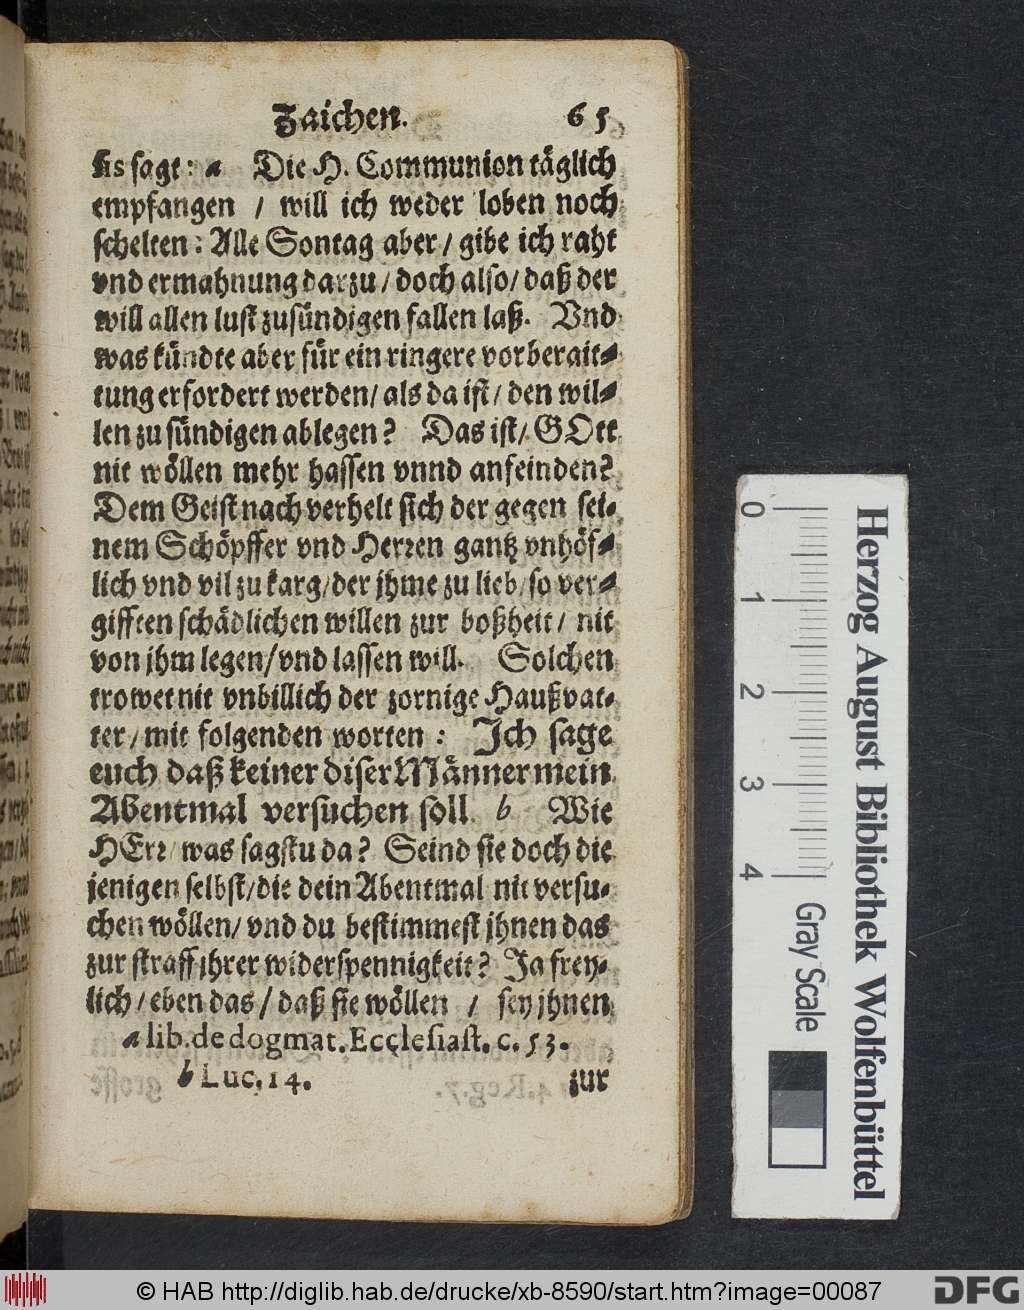 Zaichen. 65
lis sagt: a Die H. Communion täglich
empfangen / will ich weder loben noch
schelten: Alle Sontag aber / gibe ich raht
vnd ermahnung darzu / doch also / daß der
will allen lust zusündigen fallen laß. Vnd
was kündte aber für ein ringere vorberait-
tung erfordert werden / als da ist / den wil-
len zu sündigen ablegen? Das ist / GOtt
nit wöllen mehr hassen vnnd anfeinden?
Dem Geist nach verhelt sich der gegen sei-
nem Schöpffer vnd Herren gantz vnhöf-
lich vnd vil zu karg / der jhme zu lieb / so ver-
gifften schädlichen willen zur boßheit / nit
von jhm legen / vnd lassen will. Solchen
trowet nit vnbillich der zornige Haußvat-
ter / mit folgenden worten: Ich sage
euch daß keiner diser Männer mein
Abentmal versuchen soll. b Wie
HErr / was sagstu da? Seind sie doch die
jenigen selbst / die dein Abentmal nit versu-
chen wöllen / vnd du bestimmest jhnen das
zur straff jhrer widerspennigkeit? Ja frey-
lich / eben das / daß sie wöllen / sey jhnen
a lib. de dogmat. Ecclesiast. c. 53.
b Luc. 14. zur
0 1 2 3 4 Gray Scale
Herzog August Bibliothek Wolfenbüttel
© HAB http://diglib.hab.de/drucke/xb-8590/start.htm?image=00087 DFG